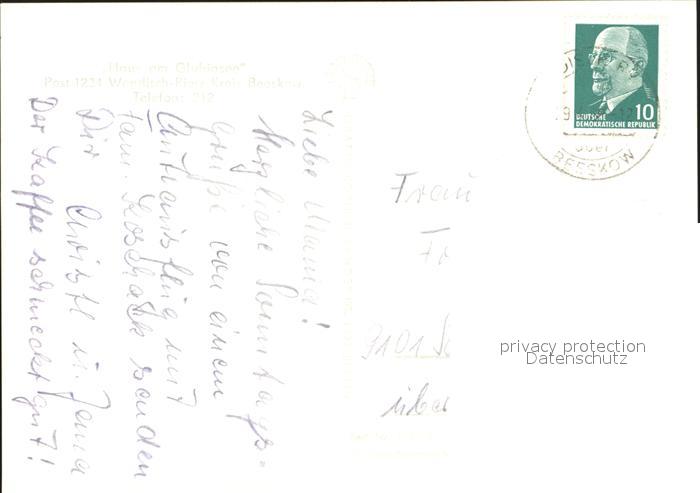 „Haus am Glubigsee"
Post 1231 Wendisch-Rietz Kreis Beeskow
Telefon: 212
Liebe Mama!
Herzliche Sonntags-
grüße von einem
Ausflug mit
Fam. senden
Dir
Christl u. Jana
Der Kaffee schmeckt gut!
Frau
9101
über
DEUTSCHE
DEMOKRATISCHE REPUBLIK
10
über
BEESKOW
privacy protection
Datenschutz